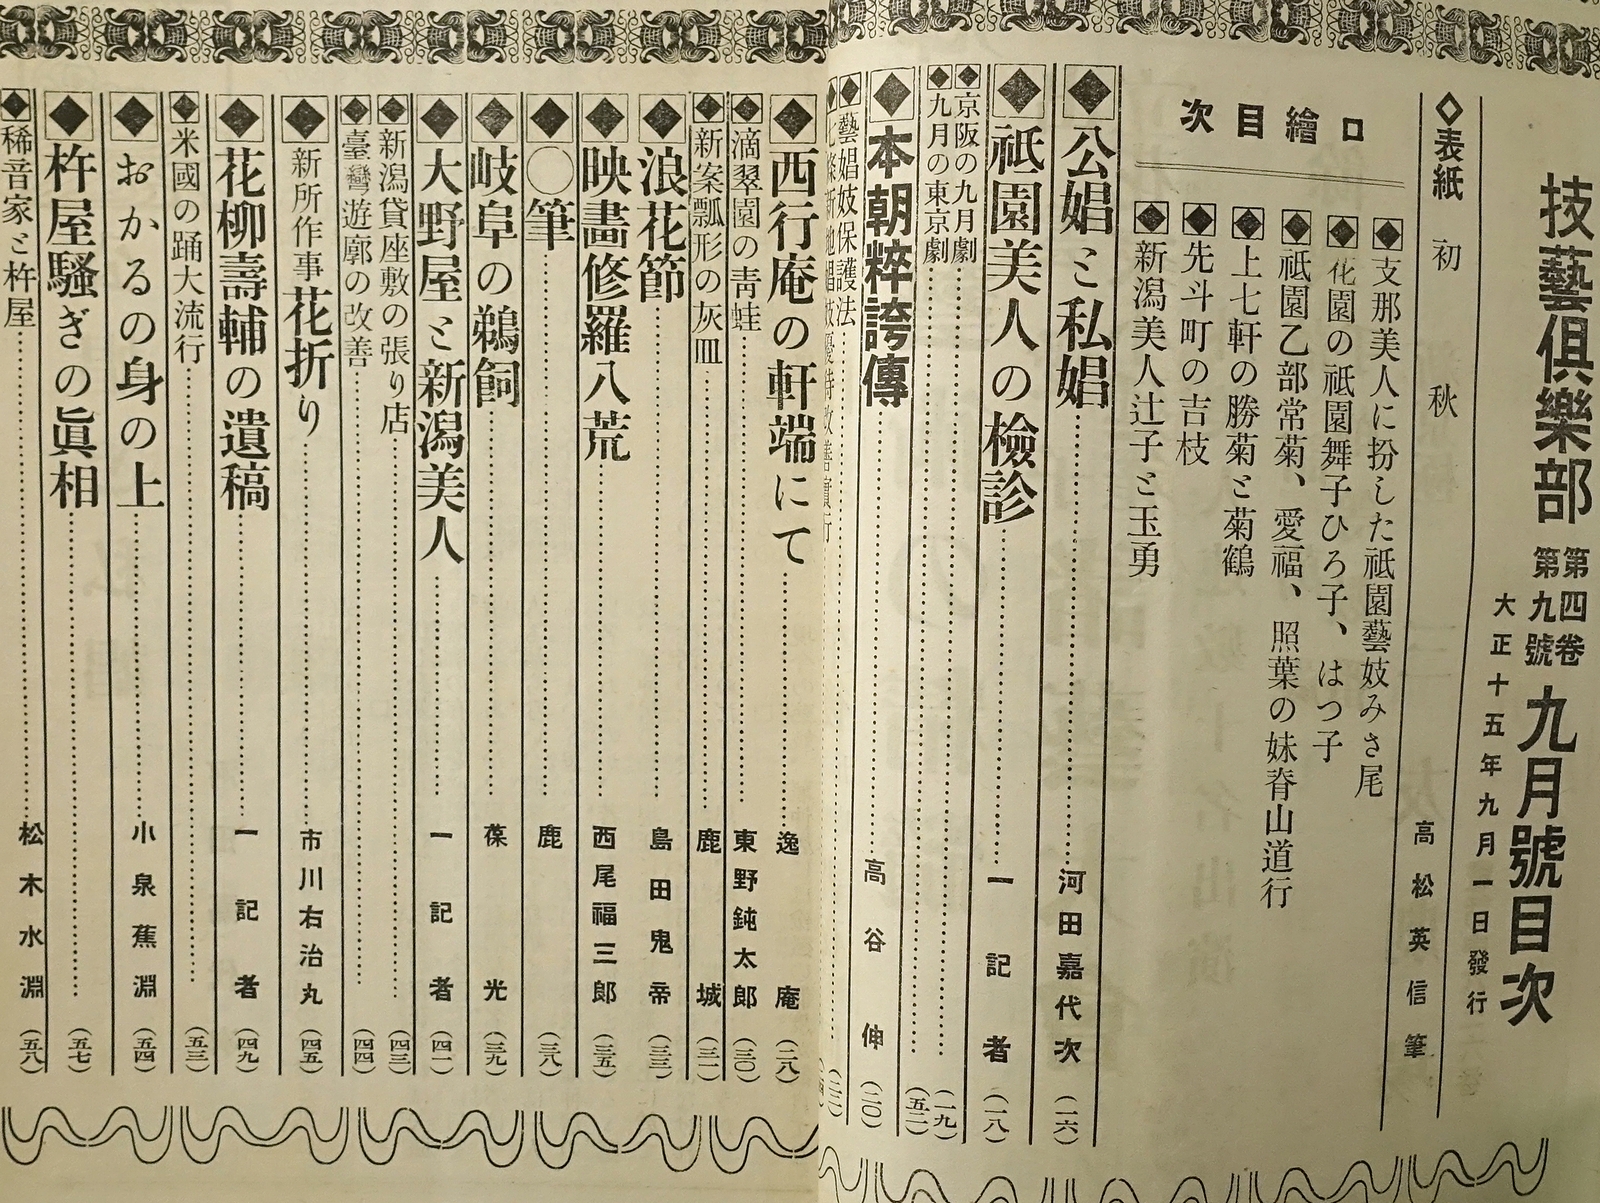 技藝俱樂部 第四卷 第九號 九月號目次
大正十五年九月一日發行
◇表紙 初秋 高松英信筆
口繪目次
◆支那美人に扮した祗園藝妓みさ尾
◆花園の祗園舞子ひろ子、はつ子
◆祗園乙部常菊、愛福、照葉の妹脊山道行
◆上七軒の勝菊と菊鶴
◆先斗町の吉枝
◆新潟美人辻子と玉勇
◆公娼と私娼 河田嘉代次 (一六)
◆祗園美人の檢診 一記者 (一八)
◆京阪の九月劇 (一九)
◆九月の東京劇 (五二)
◆本朝粹誇傳 高谷伸 (二〇)
◆藝娼妓保護法
◆西行庵の軒端にて 逸庵 (二八)
◆滴翠園の靑蛙 東野鈍太郎 (三〇)
◆新案瓢形の灰皿 鹿城 (三一)
◆浪花節 島田鬼帝 (三三)
◆映畵修羅八荒 西尾福三郎 (三五)
◆〇筆 鹿 (三八)
◆岐阜の鵜飼 葆光 (三九)
◆大野屋と新潟美人 一記者 (四一)
◆新潟貸座敷の張り店 (四三)
◆臺灣遊廓の改善 (四四)
◆新所作事花折り 市川右治丸 (四五)
◆花柳壽輔の遺稿 一記者 (四九)
◆米國の踊大流行 (五三)
◆おかるの身の上 小泉蕉淵 (五四)
◆杵屋騷ぎの眞相 (五七)
◆稀音家と杵屋 松木水淵 (五八)